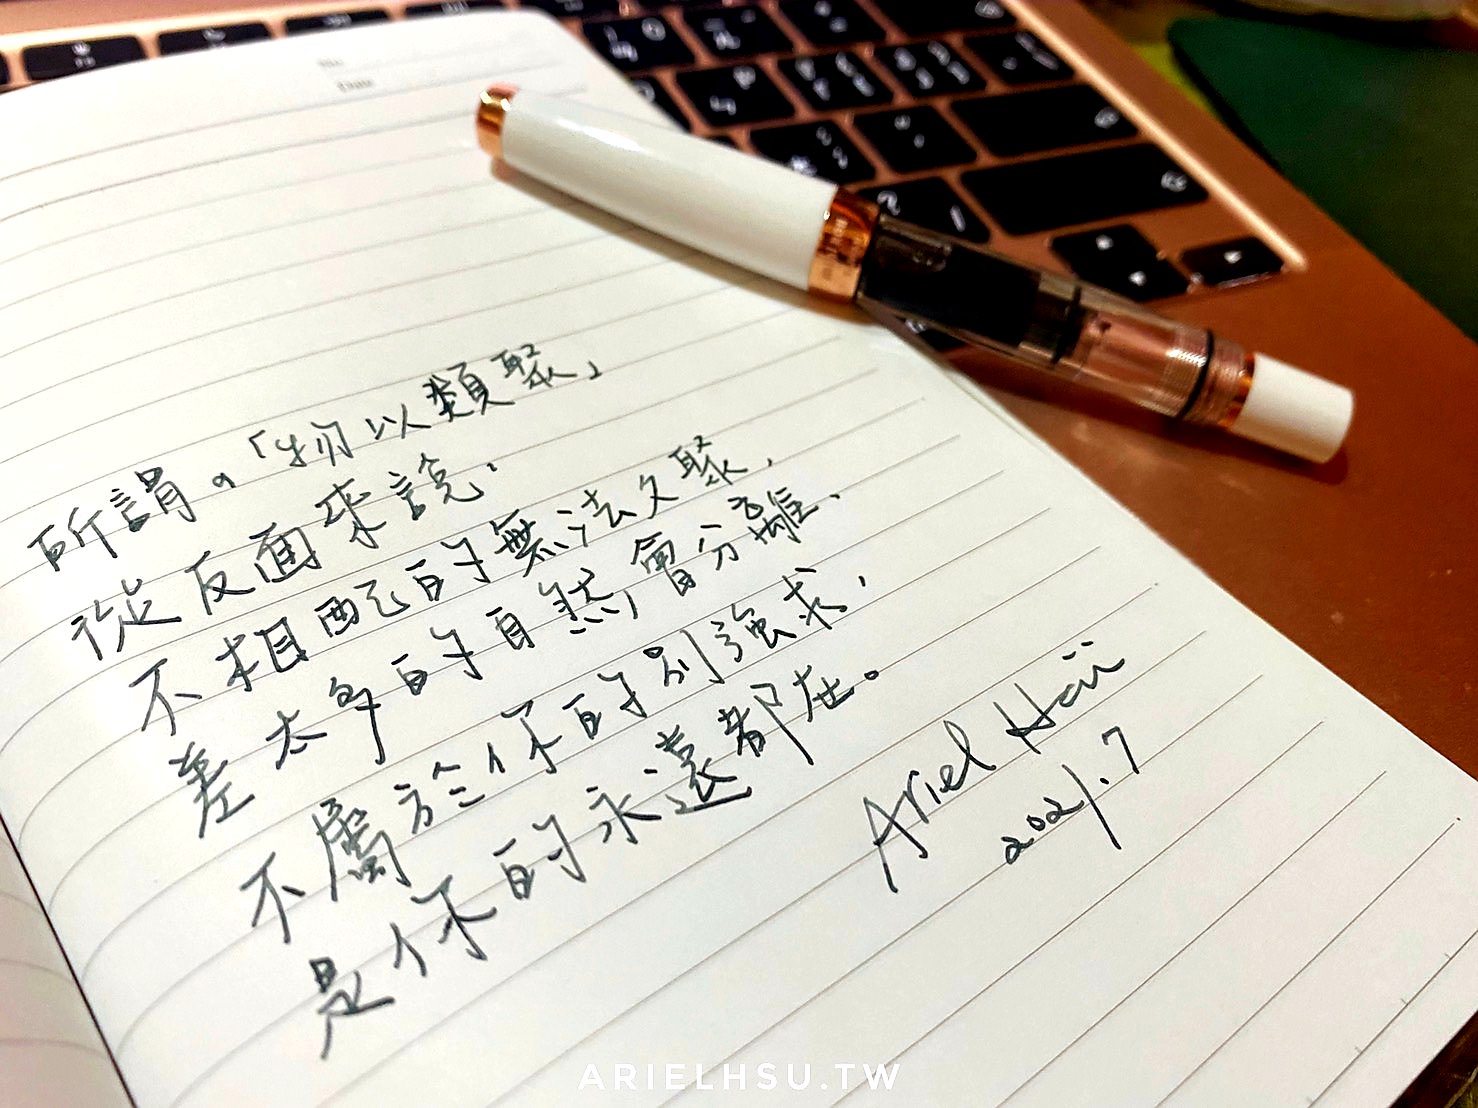 所謂。「物以類聚」
從反面來說,
不相配的無法久聚,
差太多的自然會分離,
不屬於你的別強求,
是你的永遠都在。
Ariel Hsü
2021.7
ARIELHSU.TW